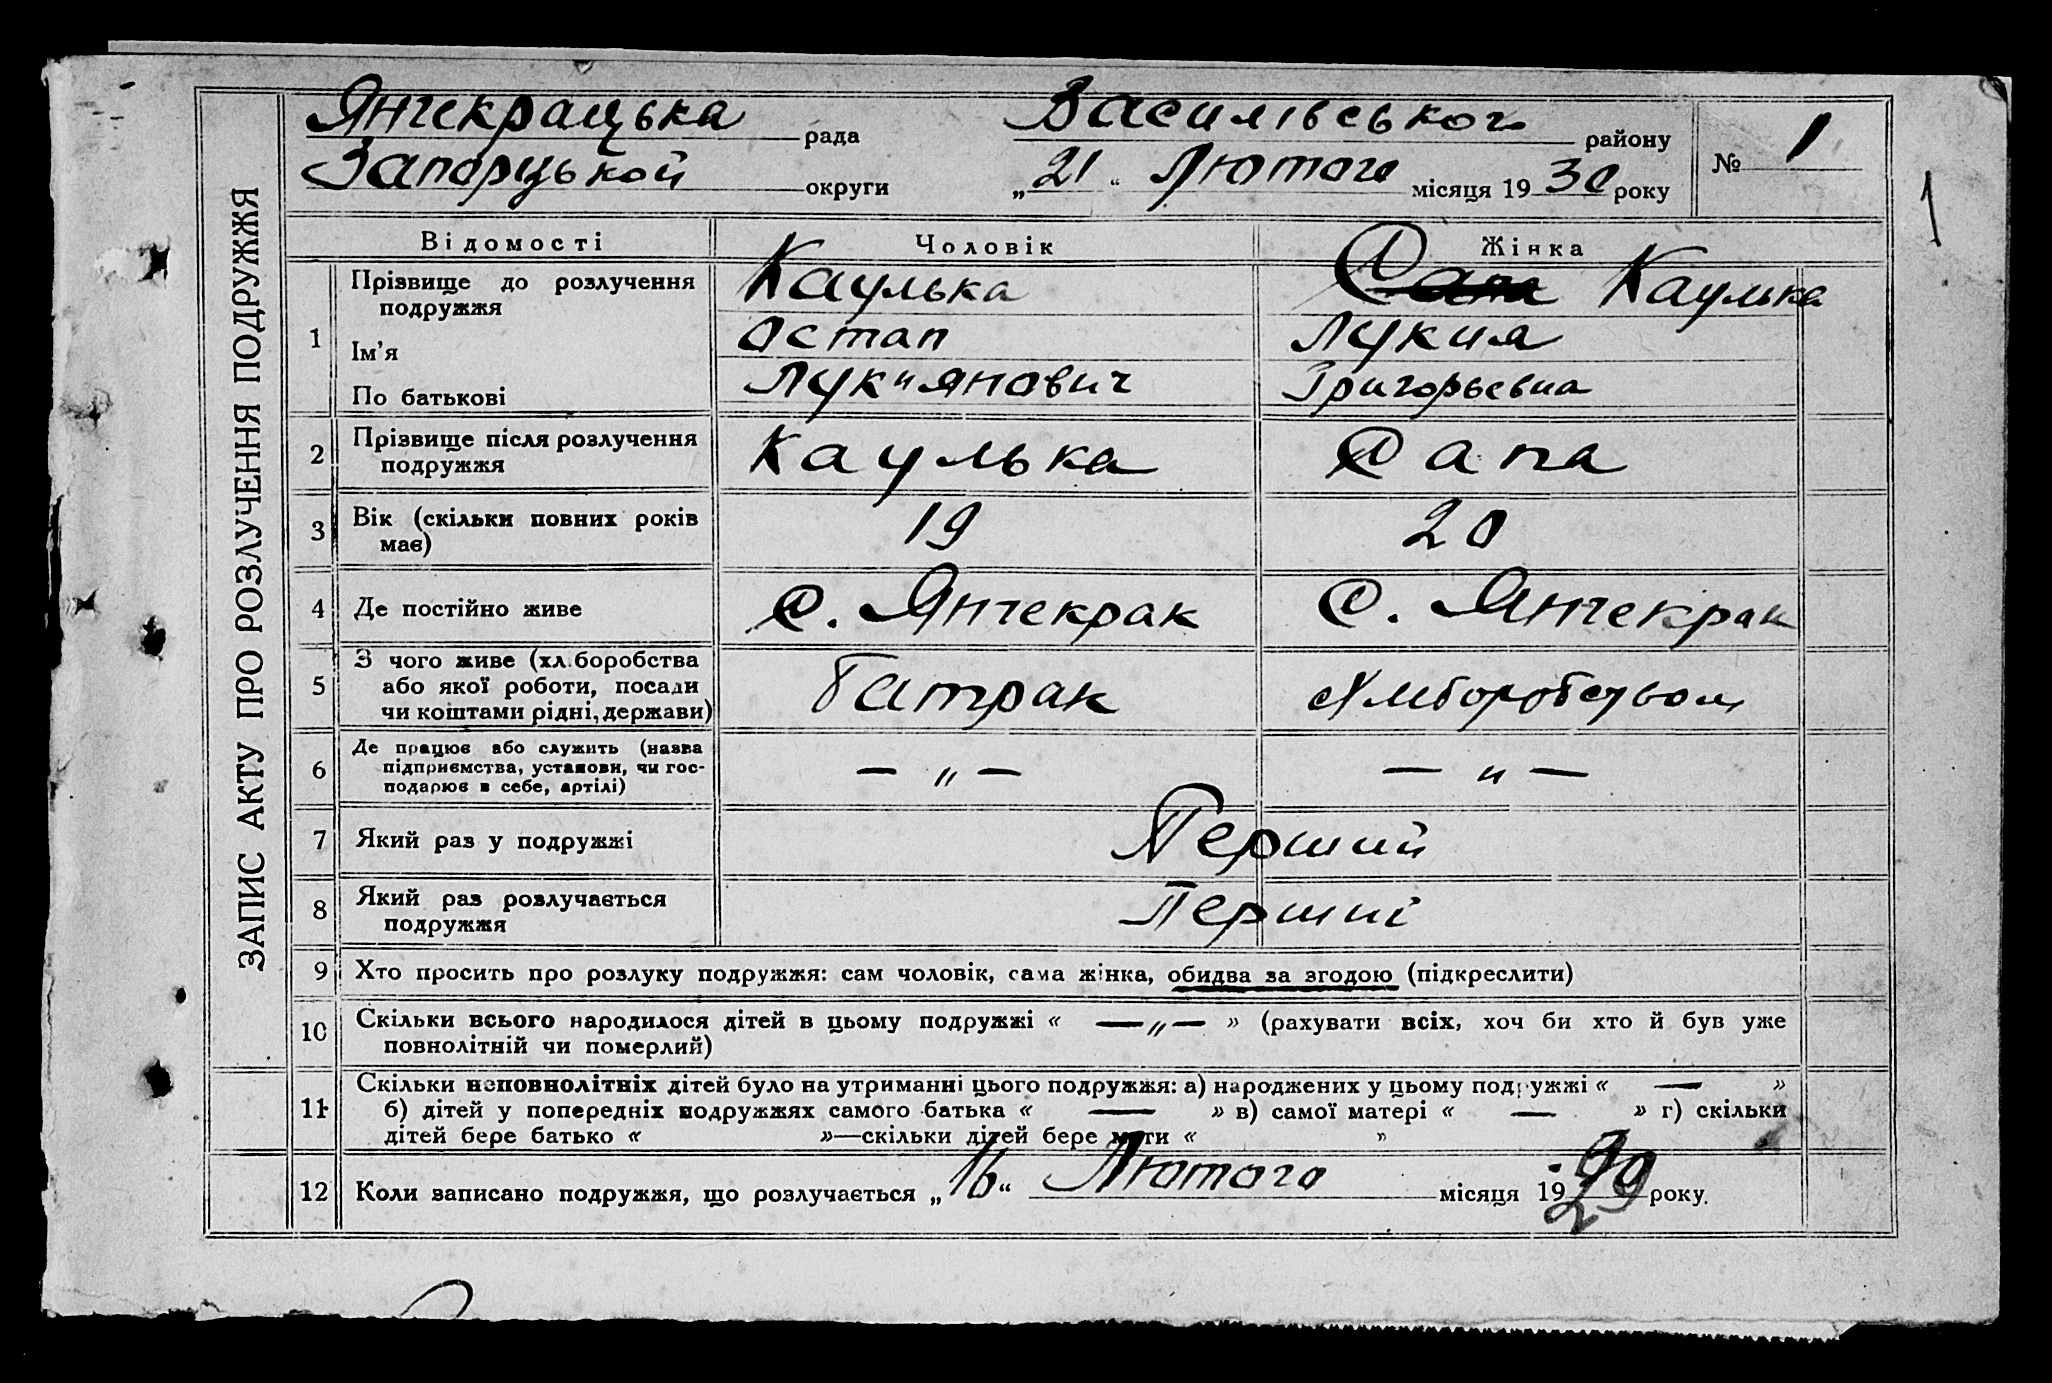 ЗАПИС АКТУ ПРО РОЗЛУЧЕННЯ ПОДРУЖЖЯ
Янчекрацька рада Василівського району № 1
Запоріцької округи „ 21 “ Лютого місяця 19 30 року
1
Відомості Чоловік Жінка
1 Прізвище до розлучення подружжя Каулька Сапа Каулька
Ім'я Остап Лукия
По батькові Лукиянович Григорьевна
2 Прізвище після розлучення подружжя Каулька Сапа
3 Вік (скільки повних років має) 19 20
4 Де постійно живе с. Янчекрак с. Янчекрак
5 З чого живе (хліборобства або якої роботи, посади чи коштами рідні, держави) Батрак Хліборобством
6 Де працює або служить (назва підприємства, установи, чи господарює в себе, артілі) — „ — — „ —
7 Який раз у подружжі Перший
8 Який раз розлучається подружжя Перший
9 Хто просить про розлуку подружжя: сам чоловік, сама жінка, обидва за згодою (підкреслити)
10 Скільки всього народилося дітей в цьому подружжі « — „ — » (рахувати всіх, хоч би хто й був уже
повнолітній чи померлий)
11 Скільки неповнолітніх дітей було на утриманні цього подружжя: а) народжених у цьому подружжі « — »
б) дітей у попередніх подружжях самого батька « — » в) самої матері « — » г) скільки
дітей бере батько « »—скільки дітей бере мати « »
12 Коли записано подружжя, що розлучається „ 16 “ Лютого місяця 19 29 року.